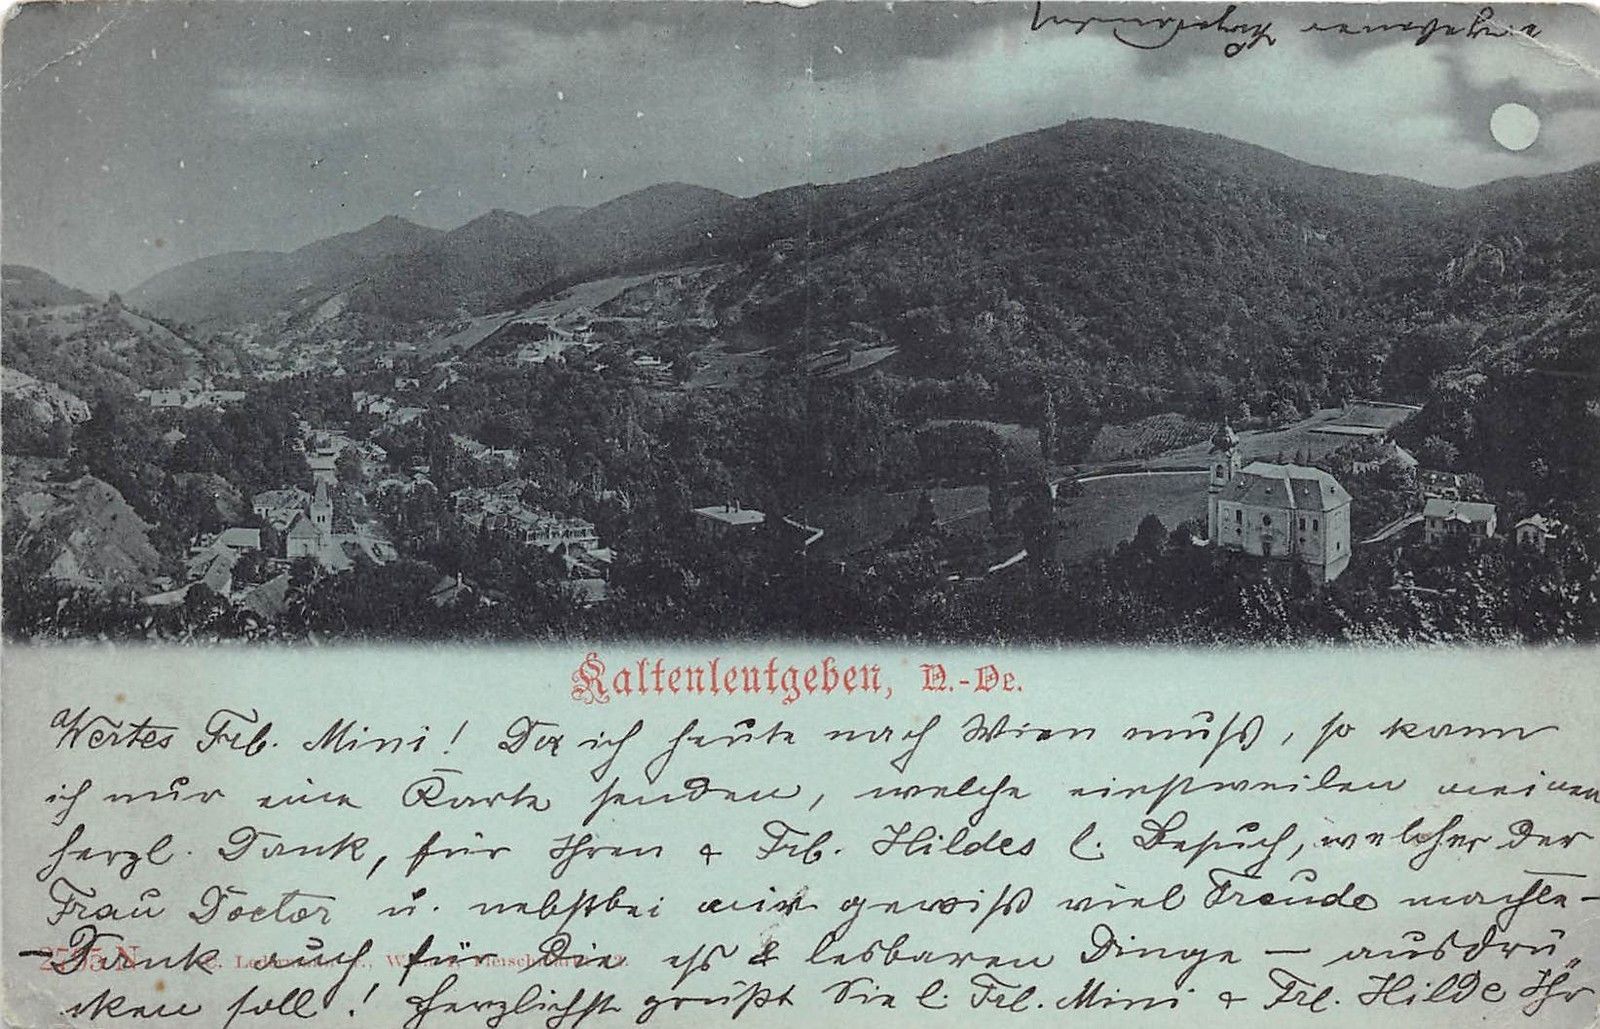 Kaltenleutgeben, N.-Oe.
Wertes Frl. Mini! Da ich heute nach Wien muß, so kann
ich nur eine Karte senden, welche einstweilen meinen
herzl. Dank, für Ihren & Frl. Hildes l. Besuch, welcher der
Frau Doctor u. nebstbei mir gewiß viel Freude machte –
– Dank auch für die eß & lesbaren Dinge – ausdrü„
cken soll! Herzlichst grüßt Sie l. Frl. Mini & Frl. Hilde Ihr
ergebener
2595 N